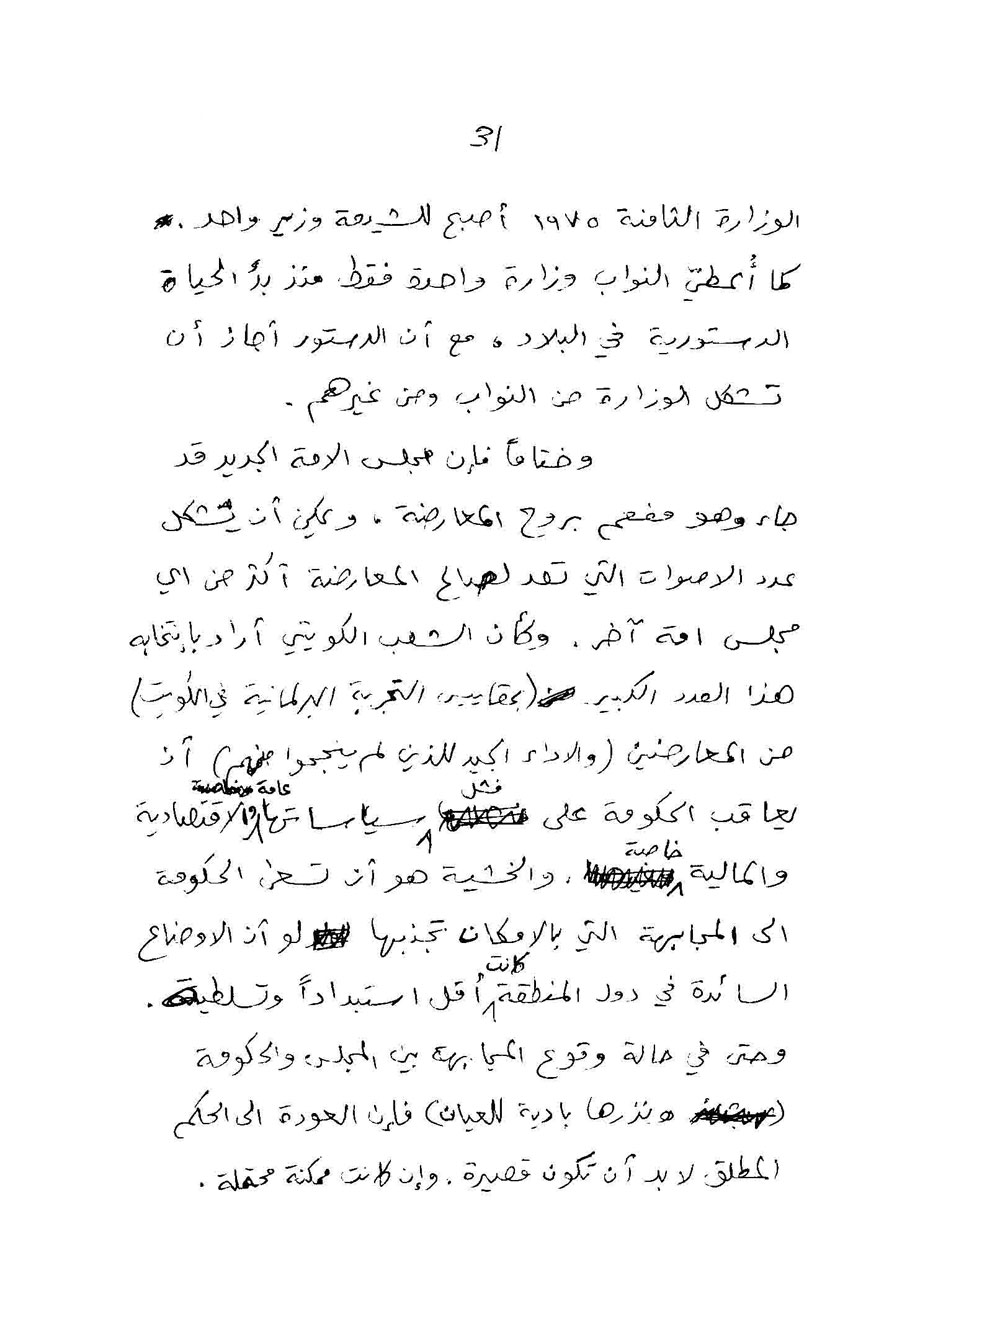 31
الوزارة الثامنة ١٩٧٥ أصبح للشيعة وزير واحد .
كما أُعطيّ النواب وزارة واحدة فقط منذ بدأ الحياة
الدستورية في البلاد ، مع أن الدستور أجاز أن
تشكل الوزارة من النواب ومن غيرهم .
وختاماً فإن مجلس الامة الجديد قد
جاء وهو مفعم بروح المعارضة ، ويمكن أن يشكل
عدد الاصوات التي تعد لصالح المعارضة أكثر من اي
مجلس امة آخر . وكأن الشعب الكويتي أراد بإنتخابه
هذا العدد الكبير (بمقاييس التجربة البرلمانية في الكويت)
من المعارضين (والاداء الجيد للذين لم ينجحوا منهم) أن
يعاقب الحكومة على فشل سياساتها عامة والاقتصادية
والمالية خاصة . والخشية هو أن تسعى الحكومة
الى المجابهة التي بالإمكان تجنبها لو أن الاوضاع
السائدة في دول المنطقة كانت أقل استبداداً وتسلطية .
وحتى في حالة وقوع المجابهة بين المجلس والحكومة
( ونذرها بادية للعيان) فإن العودة الى الحكم
المطلق لا بد أن تكون قصيرة . وإن كانت ممكنة محتملة .